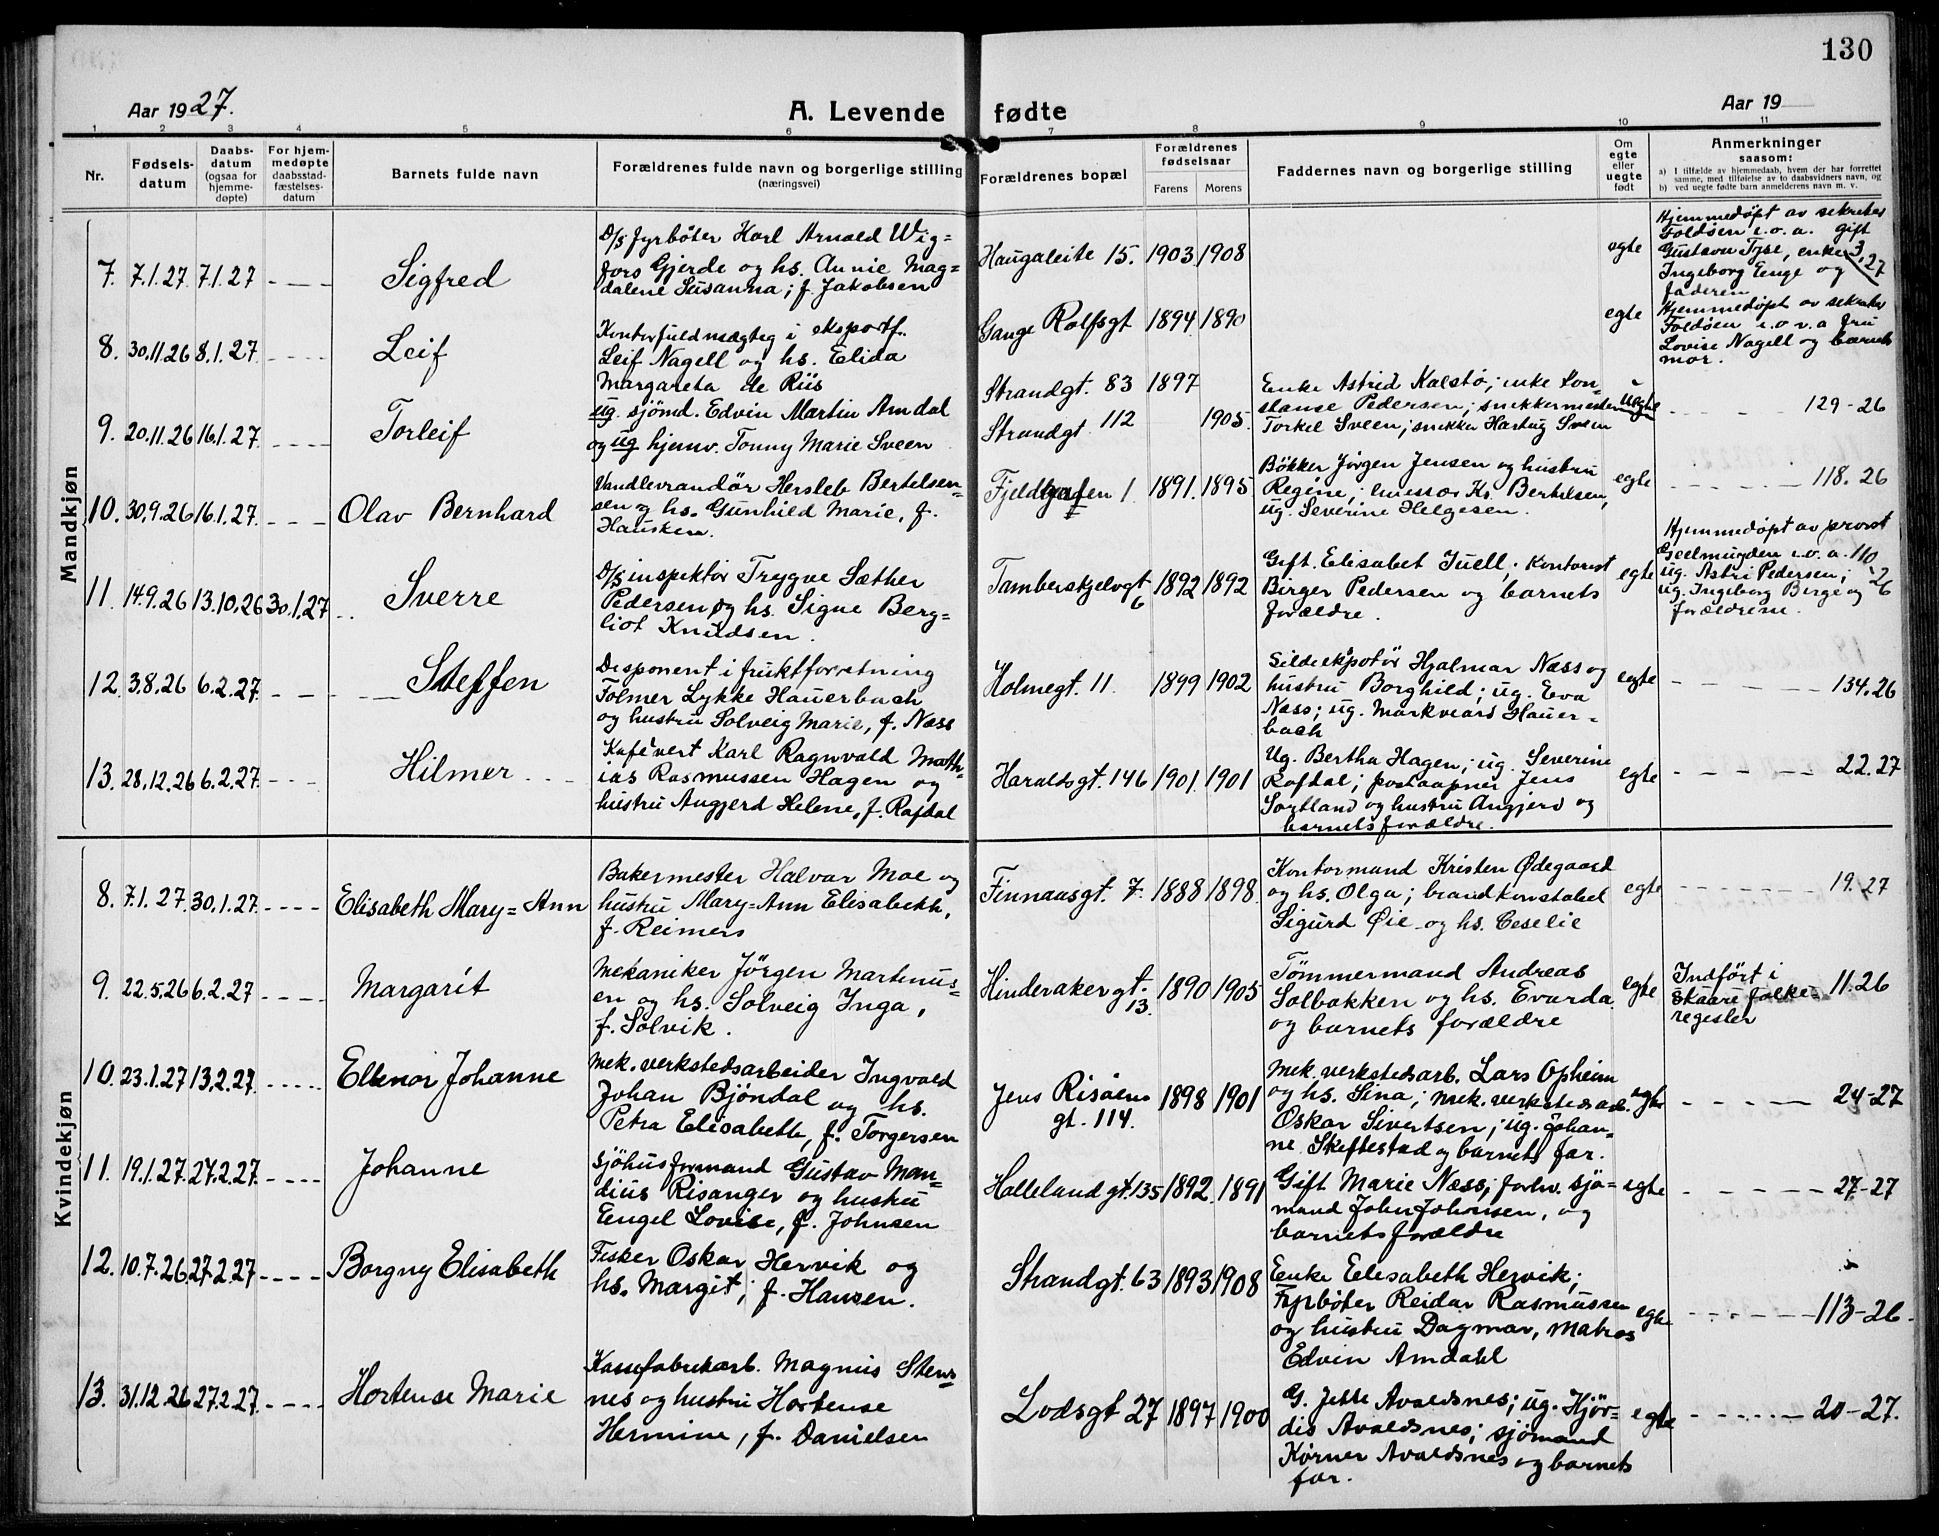 130
Aar 1927.
A. Levende fødte
Aar 19
1 2 3 4 5 6 7 8 9 10 11
Nr.
Fødsels-
datum
Daabs-
datum
(ogsaa for
hjemme-
døpte)
For hjem-
medøpte
daabsstad-
fæstelses-
datum
Barnets fulde navn
Forældrenes fulde navn og borgerlige stilling
(næringsvei)
Forældrenes bopæl
Forældrenes
fødselsaar
Farens
Morens
Faddernes navn og borgerlige stilling
Om
egte
eller
uegte
født
Anmerkninger
saasom:
a) I tilfælde av hjemmedaab, hvem der har forrettet
samme, med tilføielse av to daabsvidners navn, og
b) ved uegte fødte barn anmelderens navn m. v.
Mandkjøn
7. 7.1.27 7.1.27 - - - -
Sigfred
D/s fyrbøter Karl Arnold Wig=
fors Gjerde og hs. Annie Mag=
dalene Susanna; f. Jakobsen
Haugaleite 15. 1903 1908
egte
Hjemmedøpt av sekretær
Foldøen i.o.a. gift
Gustava Tyse, enke
Ingeborg Enge og
faderen
3,27
8. 30.11.26 8.1.27 - - - -
Leif
Kontorfuldmægtig i eksportf.
Leif Nagell og hs. Elida
Margareta de Riis
Gange Rolfsgt 1894 1890
egte
Hjemmedøpt av sekretær
Foldøen i.o.v.a fru
Lovise Nagell og barnets
mor.
9. 20.11.26 16.1.27 - - - -
Torleif
ug. sjömd. Edvin Martin Amdal
og ug hjemv. Tonny Marie Sveen
Strandgt. 83 1897
Strandgt 112 1905
Enke Astrid Kalstø; enke Kon-
stanse Pedersen; snekkermester
Torkel Sveen; snekker Hartvig Sveen
uegte
129-26
10. 30.9.26 16.1.27 - - - -
Olav Bernhard
Vandlevrandør Hersleb Bertelsen=
sen og hs. Gunhild Marie, f.
Hausken.
Fjeldgaten 1 1891. 1895
Bökker Jørgen Jensen og hustru
Regine; Ks. Bertelsen,
ug. Severine Helgesen.
egte
118.26
11. 14.9.26 13.10.26 30.1.27
Sverre
D/s inspektör Trygve Sæther
Pedersen og hs. Signe Berg=
liot Knudsen.
Tamberskjelvgt 6 1892 1892
Gift. Elisabet Juell; kontorist
Birger Pedersen og barnets
forældre.
egte
Hjemmedøpt av provst
Geelmuyden i.o.a.
ug. Astri Pedersen;
ug. Ingeborg Berge og
forældrene.
110-26
12. 3.8.26 6.2.27 - - -
Steffen
Disponent i fruktforretning
Folmer Lykke Hauerbach
og hustru Solveig Marie, f. Næss
Holmegt. 11. 1899 1902
Sildeekspotör Hjalmar Næss og
hustru Borghild; ug. Eva
Næss; ug. Markvard Hauer-
bach
egte
134.26
13. 28.12.26 6.2.27. - - -
Hilmer
Kafévert Karl Ragnvald Math=
ias Rasmussen Hagen og
hustru Angjerd Helene, f. Rafdal
Haraldsgt. 146 1901 1901
Ug. Bertha Hagen; ug. Severine
Rafdal; postaapner Jens
Sortland og hustru Angjerd og
barnets forældre.
egte
22.27
Kvindekjøn
8. 7.1.27 30.1.27. - - - -
Elisabeth Mary=Ann
Bakermester Halvar Moe og
hustru Mary=Ann Elisabeth,
f. Reimers
Finnaasgt. 7. 1888 1898.
Kontormand Kristen Ødegaard
og hs. Olga; brandkonstabel
Sigurd Øie og hs. Ceselie
egte
19.27
9. 22.5.26 6.2.27 - - - -
Margarit
Mekaniker Jörgen Martinus=
en og hs. Solveig Inga,
f. Solvik.
Hinderakergt. 13. 1890 1905
Tømmermand Andreas
Solbakken og hs. Evarda
og barnets forældre
egte
Indført i
Skaare folke=
register
11.26
10. 23.1.27 13.2.27. - - - -
Ellenor Johanne
Mek. verkstedsarbeider Ingvald
Johan Bjöndal og hs.
Petra Elisabeth, f. Torgersen
Jens Risöens
gt. 114. 1898 1901
Mek. verkstedsarb. Lars Opheim
og hs. Sina; mek. verkstedsarb.
Oskar Sivertsen; ug. Johan=
ne Skeftestad og barnets far.
egte
24-27
11. 19.1.27. 27.2.27. - - - -
Johanne
Sjöhusformand Gustav Man=
dius Risanger og hustru
Engel Lovise, f. Johnsen
Hallelandgt. 135 1892. 1891
Gift Marie Næss; forhv. sjö=
mand John Johnsen, og
barnets forældre
egte
27-27
12. 10.7.26. 27.2.27 - - - -
Borgny Elisabeth
Fisker Oskar Hervik og
hs. Margit; f. Hansen.
Strandgt. 63 1893 1908
Enke Elisabeth Hervik;
Fyrbøter Reidar Rasmussen
og hustru Dagmar, Matros
Edvin Amdahl
egte
113-26.
13. 31.12.26 27.2.27. - - - -
Hortense Marie
Kassefabrikarb. Magnus Stens=
nes og hustru Hortense
Hermine, f. Danielsen
Lodsgt 27 1897 1900
G. Jette Avaldsnes; ug. Hjör=
dis Avaldsnes; sjömand
Körner Avaldsnes og barnets
far.
egte
20-27.